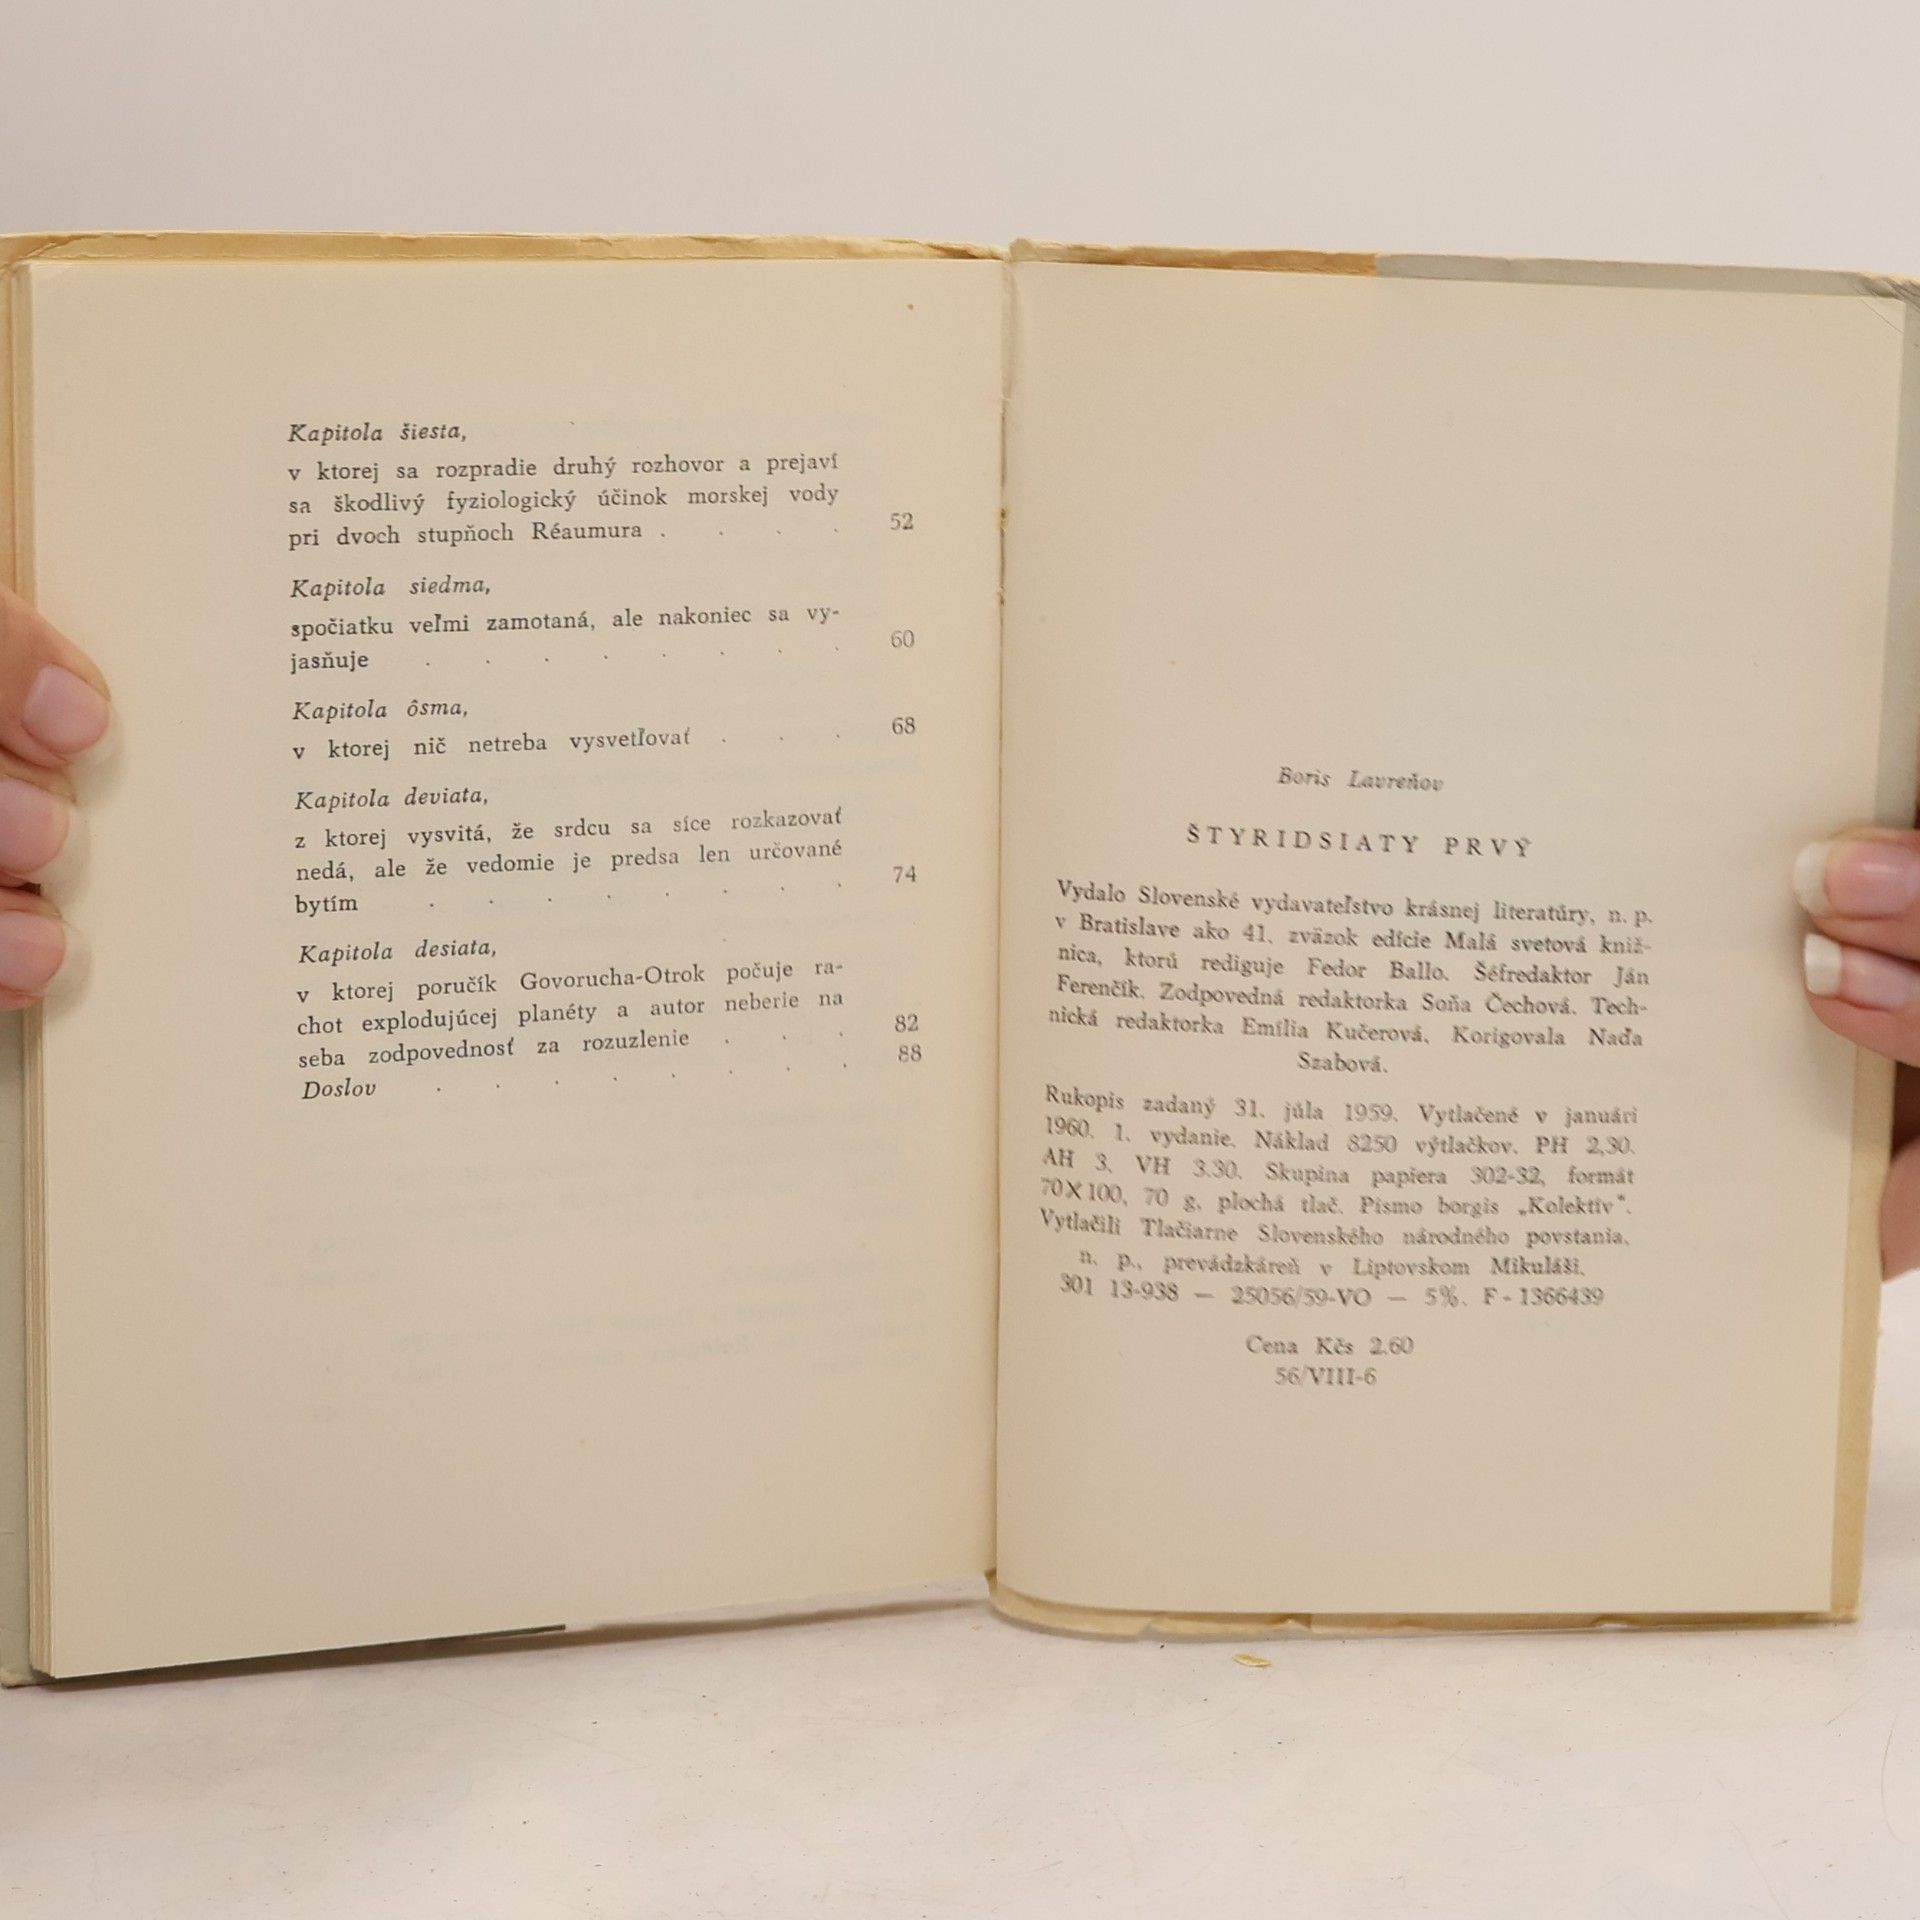 Kapitola šiesta,
v ktorej sa rozpradie druhý rozhovor a prejaví
sa škodlivý fyziologický účinok morskej vody
pri dvoch stupňoch Réaumura . . . . 52
Kapitola siedma,
spočiatku veľmi zamotaná, ale nakoniec sa vy-
jasňuje . . . . . . . . 60
Kapitola ôsma,
v ktorej nič netreba vysvetľovať . . . 68
Kapitola deviata,
z ktorej vysvitá, že srdcu sa síce rozkazovať
nedá, ale že vedomie je predsa len určované
bytím . . . . . . . . 74
Kapitola desiata,
v ktorej poručík Govorucha-Otrok počuje ra-
chot explodujúcej planéty a autor neberie na
seba zodpovednosť za rozuzlenie . . . 82
Doslov . . . . . . . . 88
Boris Lavreňov
ŠTYRIDSIATY PRVÝ
Vydalo Slovenské vydavateľstvo krásnej literatúry, n. p.
v Bratislave ako 41. zväzok edície Malá svetová kniž-
nica, ktorú rediguje Fedor Ballo. Šéfredaktor Ján
Ferenčík. Zodpovedná redaktorka Soňa Čechová. Tech-
nická redaktorka Emília Kučerová. Korigovala Naďa
Szabová.
Rukopis zadaný 31. júla 1959. Vytlačené v januári
1960. 1. vydanie. Náklad 8250 výtlačkov. PH 2,30.
AH 3. VH 3.30. Skupina papiera 302-32, formát
70X100, 70 g, plochá tlač. Písmo borgis „Kolektív".
Vytlačili Tlačiarne Slovenského národného povstania,
n. p., prevádzkáreň v Liptovskom Mikuláši.
301 13-938 — 25056/59-VO — 5%. F-1366439
Cena Kčs 2.60
56/VIII-6